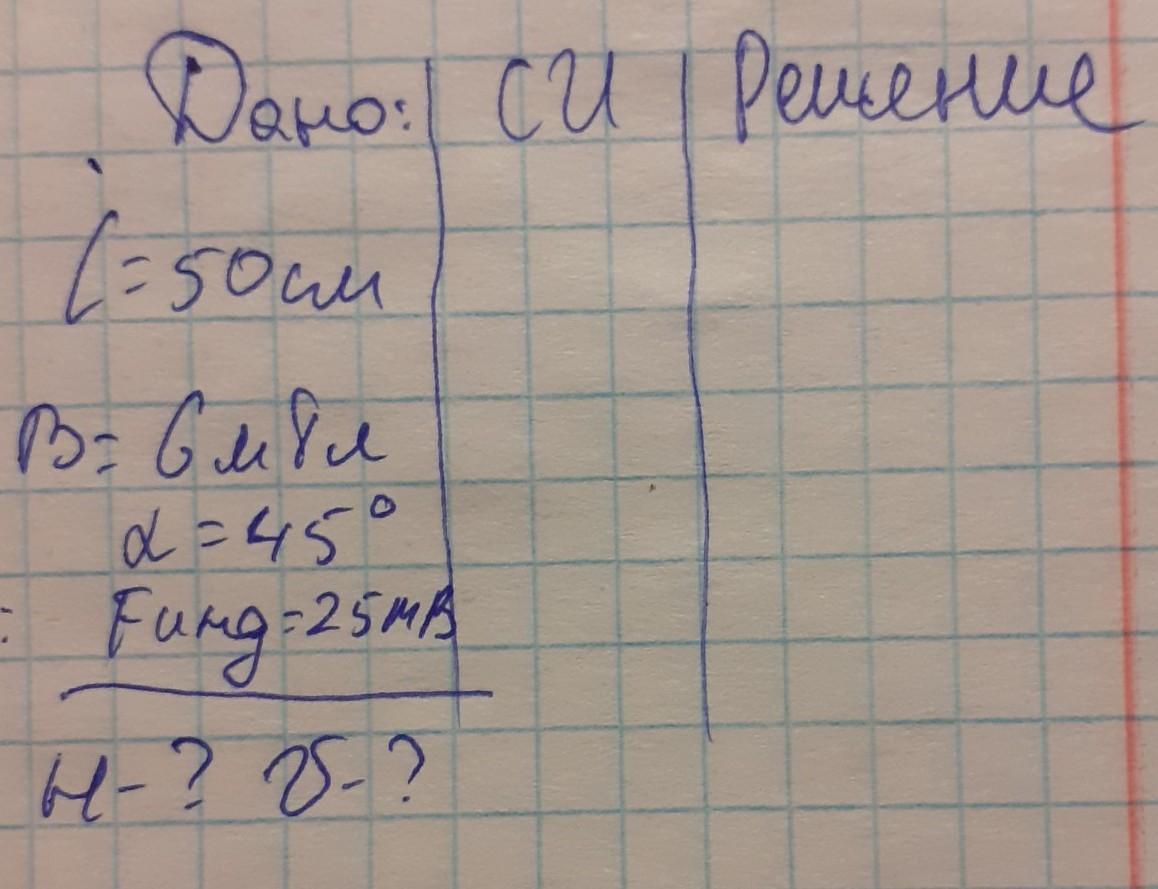 Дано: СИ Решение
l = 50 см
B = 6 мТл
α = 45°
Eинд = 25 мВ
н - ? υ - ?